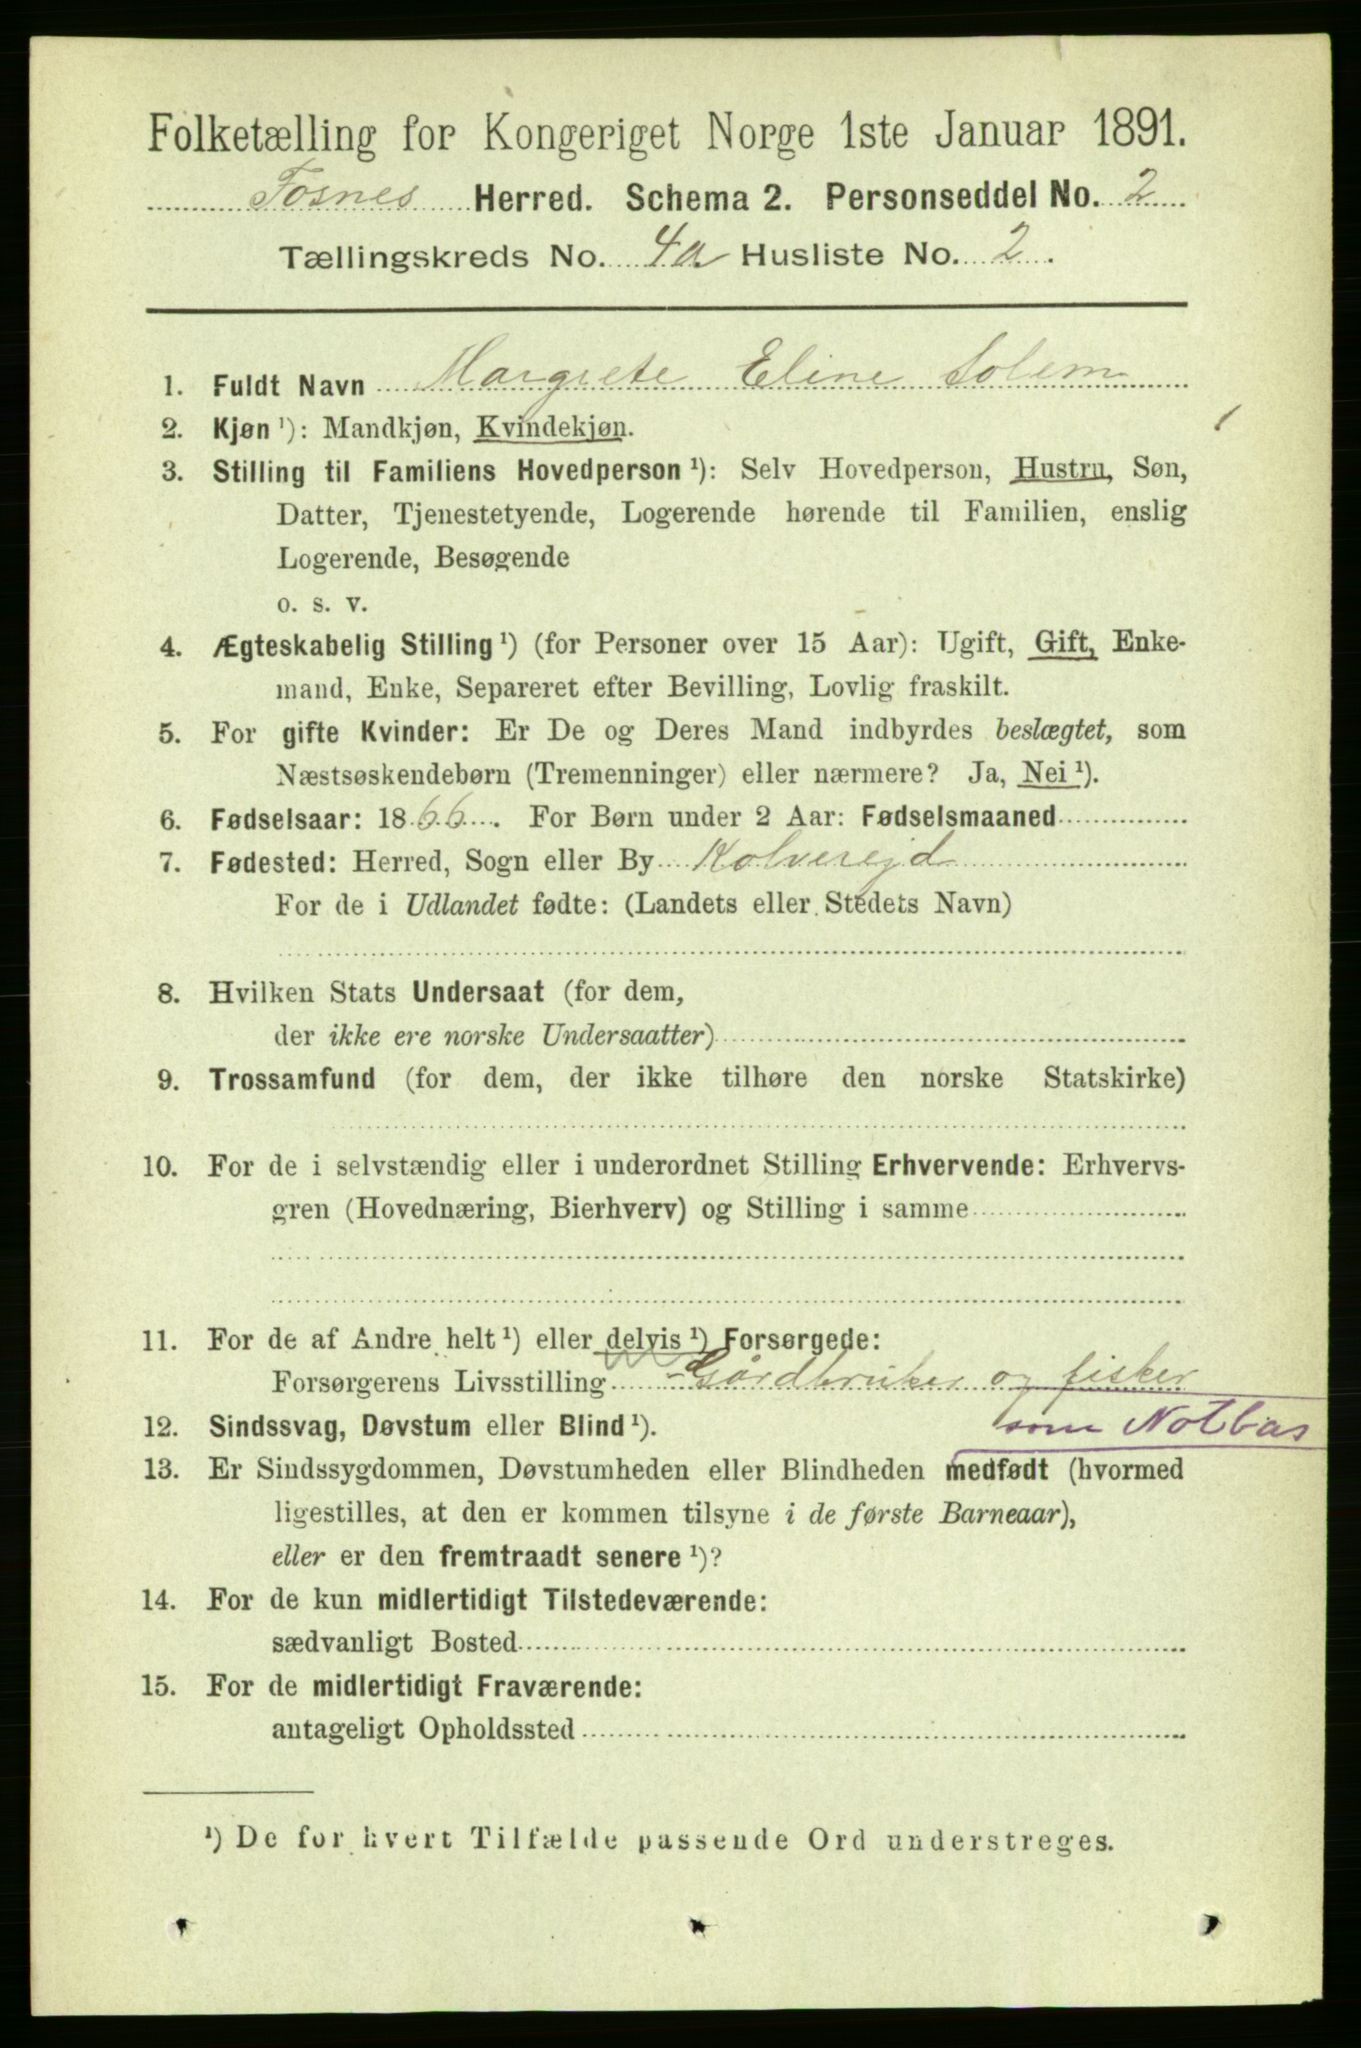 Folketælling for Kongeriget Norge 1ste Januar 1891.
Fosnes Herred. Schema 2. Personseddel No. 2
Tællingskreds No. 4a Husliste No. 2.
1. Fuldt Navn Margrete Eline Solem
2. Kjøn ¹): Mandkjøn, Kvindekjøn.
3. Stilling til Familiens Hovedperson ¹): Selv Hovedperson, Hustru, Søn,
Datter, Tjenestetyende, Logerende hørende til Familien, enslig
Logerende, Besøgende
o. s. v.
4. Ægteskabelig Stilling ¹) (for Personer over 15 Aar): Ugift, Gift, Enke-
mand, Enke, Separeret efter Bevilling, Lovlig fraskilt.
5. For gifte Kvinder: Er De og Deres Mand indbyrdes beslægtet, som
Næstsøskendebørn (Tremenninger) eller nærmere? Ja, Nei ¹).
6. Fødselsaar: 1866. For Børn under 2 Aar: Fødselsmaaned
7. Fødested: Herred, Sogn eller By Kolverejd
For de i Udlandet fødte: (Landets eller Stedets Navn)
8. Hvilken Stats Undersaat (for dem,
der ikke ere norske Undersaatter)
9. Trossamfund (for dem, der ikke tilhøre den norske Statskirke)
10. For de i selvstændig eller i underordnet Stilling Erhvervende: Erhvervs-
gren (Hovednæring, Bierhverv) og Stilling i samme
11. For de af Andre helt ¹) eller delvis ¹) Forsørgede:
Forsørgerens Livsstilling Gårdbruker og fisker
som Notbas
12. Sindssvag, Døvstum eller Blind ¹).
13. Er Sindssygdommen, Døvstumheden eller Blindheden medfødt (hvormed
ligestilles, at den er kommen tilsyne i de første Barneaar),
eller er den fremtraadt senere ¹)?
14. For de kun midlertidigt Tilstedeværende:
sædvanligt Bosted
15. For de midlertidigt Fraværende:
antageligt Opholdssted
¹) De for hvert Tilfælde passende Ord understreges.